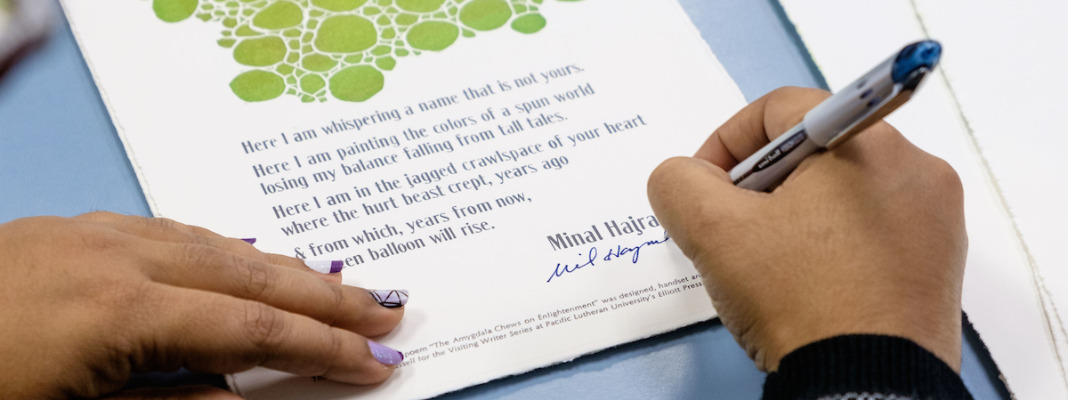 Here I am whispering a name that is not yours.
Here I am painting the colors of a spun world
losing my balance falling from tall tales.
Here I am in the jagged crawlspace of your heart
where the hurt beast crept, years ago
& from which, years from now,
en balloon will rise.
Minal Hajra
poem "The Amygdala Chews on Enlightenment" was designed, handset a
ell for the Visiting Writer Series at Pacific Lutheran University's Elliott Press
uni-ball